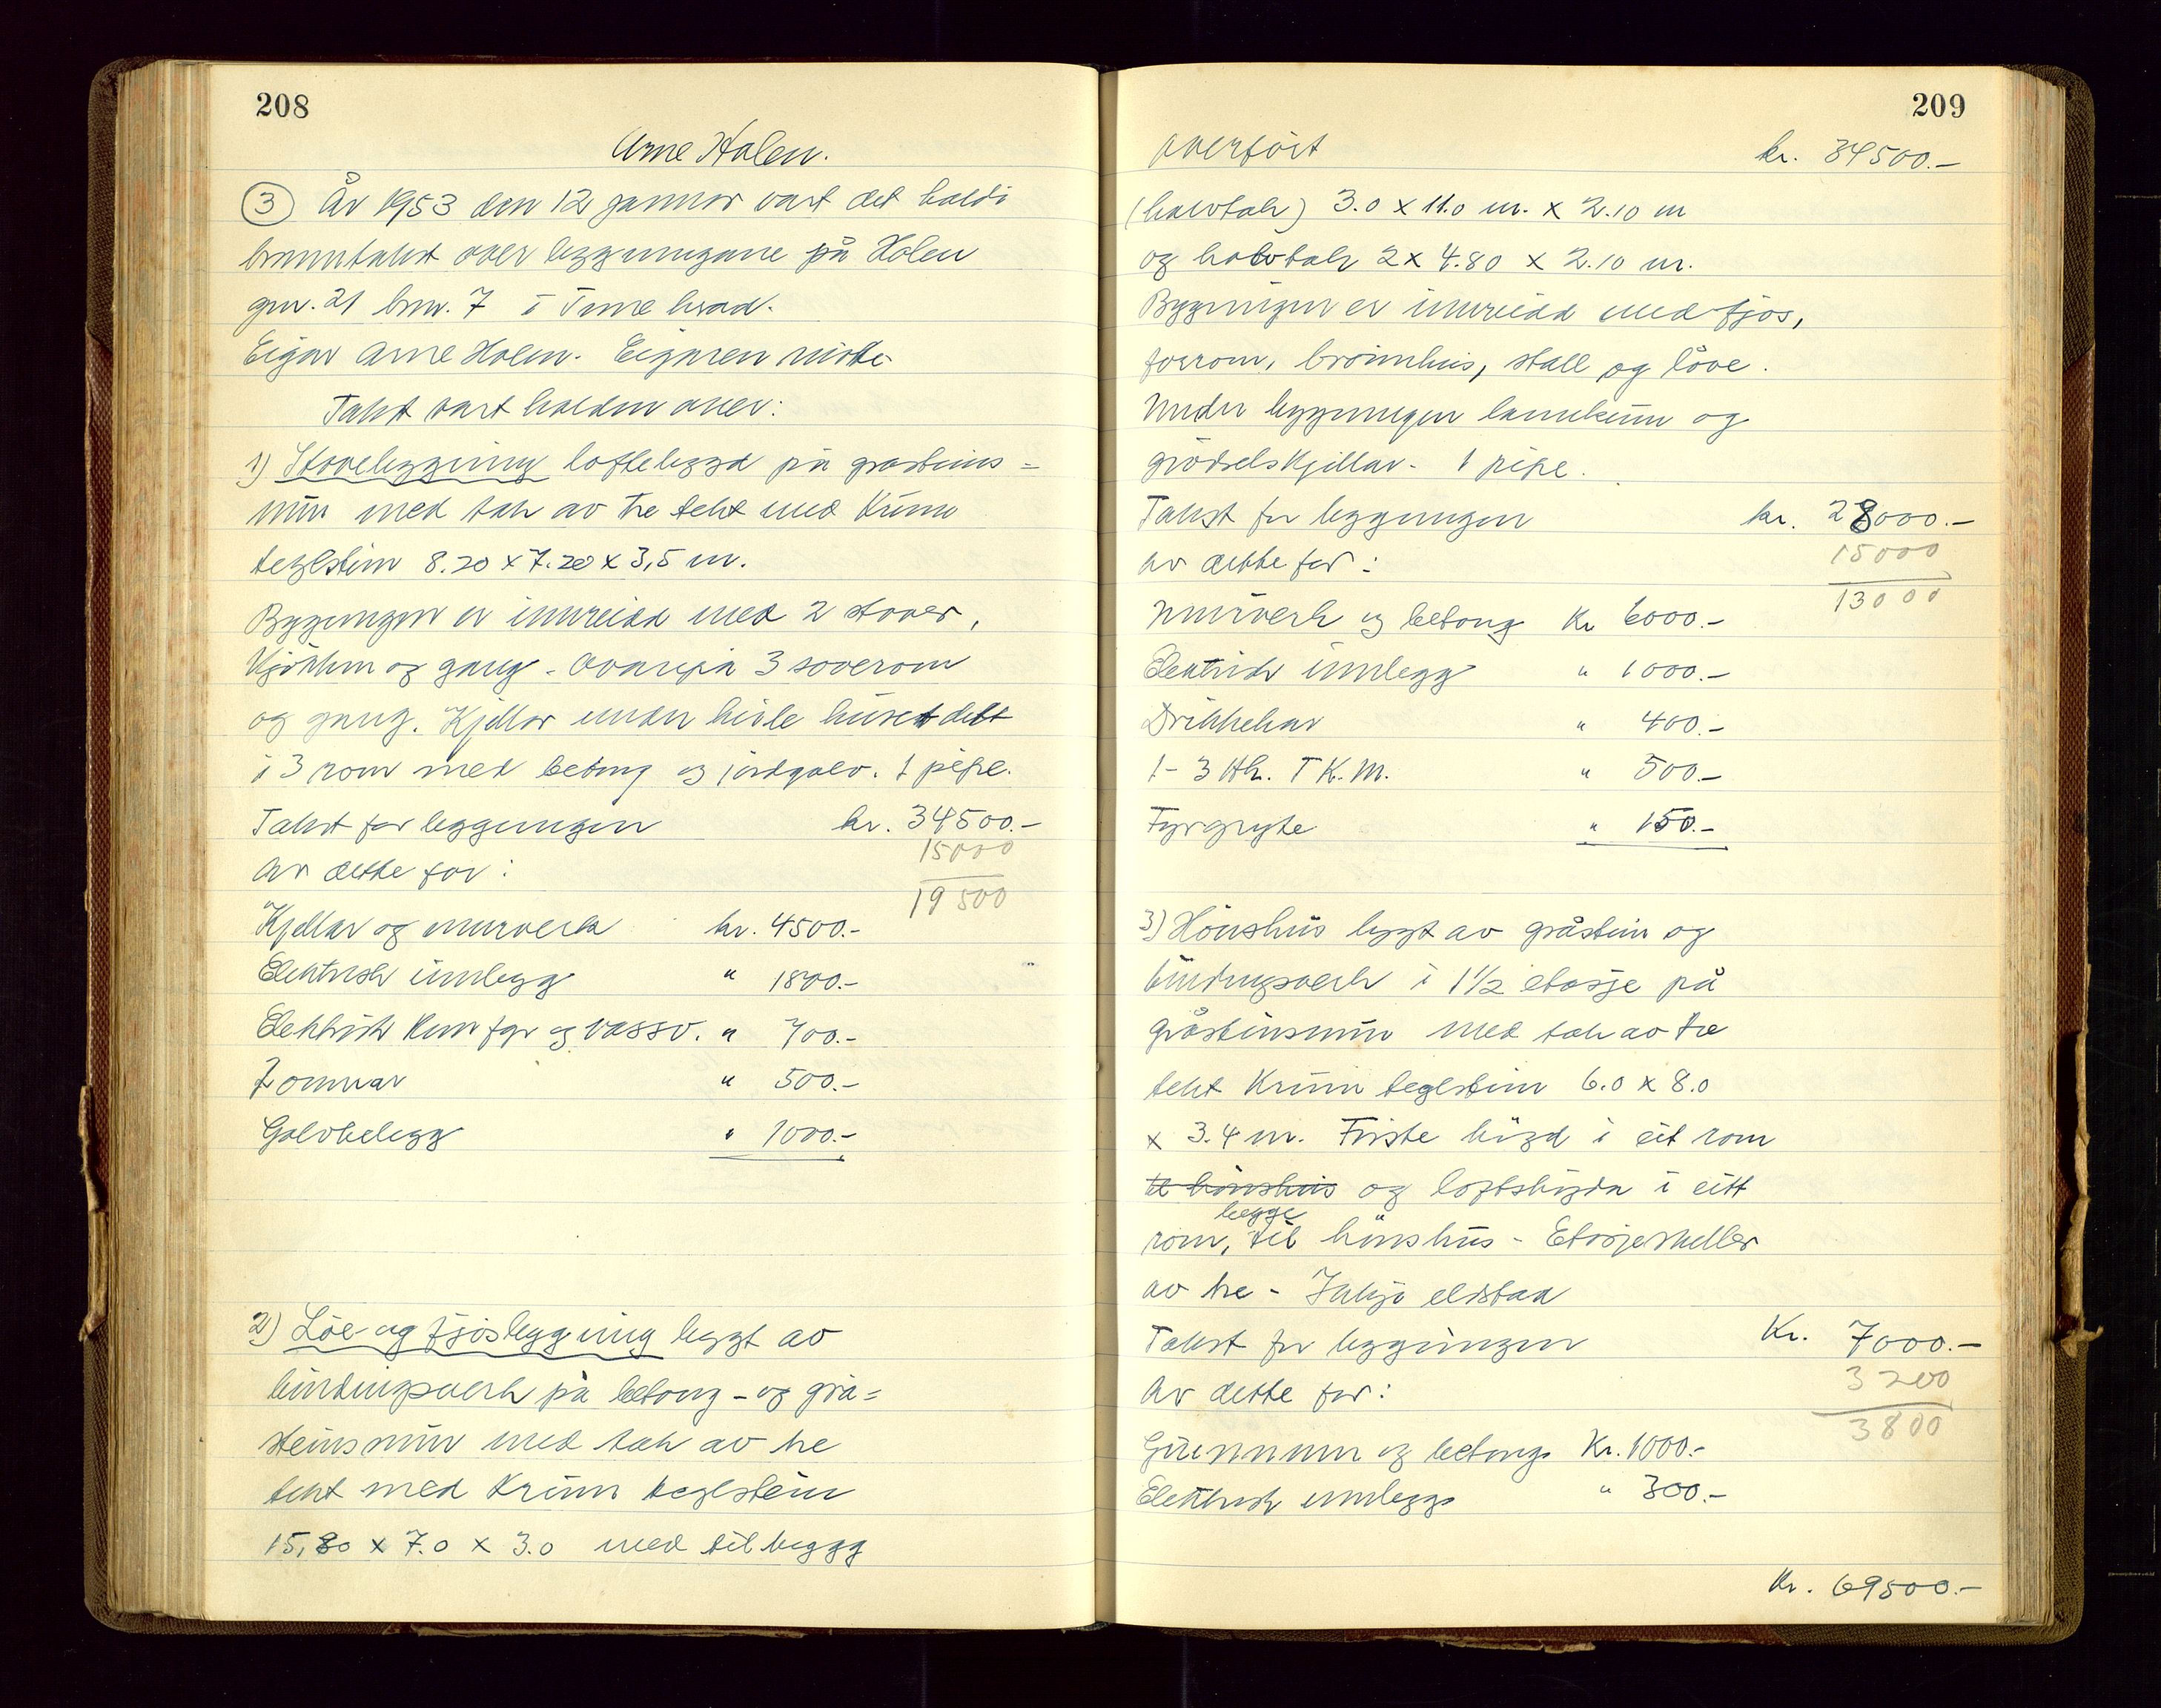 208
Arne Holen.
(3) År 1953 den 12 januar vart det haldi
branntakst over byggningane på Holen
gnr. 21 bnr. 7 i Time herad.
Eigar Arne Holen. Eigaren møtte
Takst vart halden over:
1) Stovebygging loftebygd på grasteins=
mur med tak av tre tekt med Krum
teglstein 8.20 x 7.20 x 3,5 m.
Bygningen er innreidd med 2 stover,
Kjökken og gang - Ovanpå 3 soverom
og gang. Kjellar under heile huset delt
i 3 rom med betong og jordgolv. 1 pipe.
Takst for byggningen kr. 34500.-
15000
Av dette for:
19500
Kjellar og murverk kr. 4500.-
Elektrisk innlegg " 1800.-
Elektrisk Kumfyr og vassv. " 700.-
2 omnar " 500.-
Golvbelegg " 1000.-
2) Löe- og fjösbygging bygt av
bindingsverk på betong- og grå=
steinsmur med tak av tre
tekt med Krum teglstein
15,80 x 7.0 x 3.0 med tilbygg
209
Overfört kr. 34500.-
(halvtak) 3.0 x 11.0 m. x 2.10 m
og halvtak 2 x 4.80 x 2.10 m.
Bygningen er innreidd med fjos,
forrom, brönnhus, stall og löve.
Under byggningen landkum og
grödselskjellar - 1 pipe.
Takst for byggningen kr. 28000.-
15000
Av dette for:
13000
Murverk og betong Kr 6000.-
Elektrisk innlegg " 1000.-
Drikkekar " 400.-
1- 3 Hk. T K. M. " 500.-
Fyrgryte " 150.-
3) Hönshus bygt av gråstein og
bindingsverk i 1 1/2 etasje på
gråsteinsmur med tak av tre
tekt Krum teglstein 6.0 x 8.0
x 3.4 m. Fyrste högd i eit rom
til hönshus og loftshögda i eitt
begge
rom, til hönshus - Etasjeskiller
av tre - Ikkje eldstad
Takst for byggningen Kr. 7000.-
3200
Av dette for:
3800
Grunnmur og betong Kr. 1000.-
Elektrisk innlegg " 300.-
Kr. 69500.-